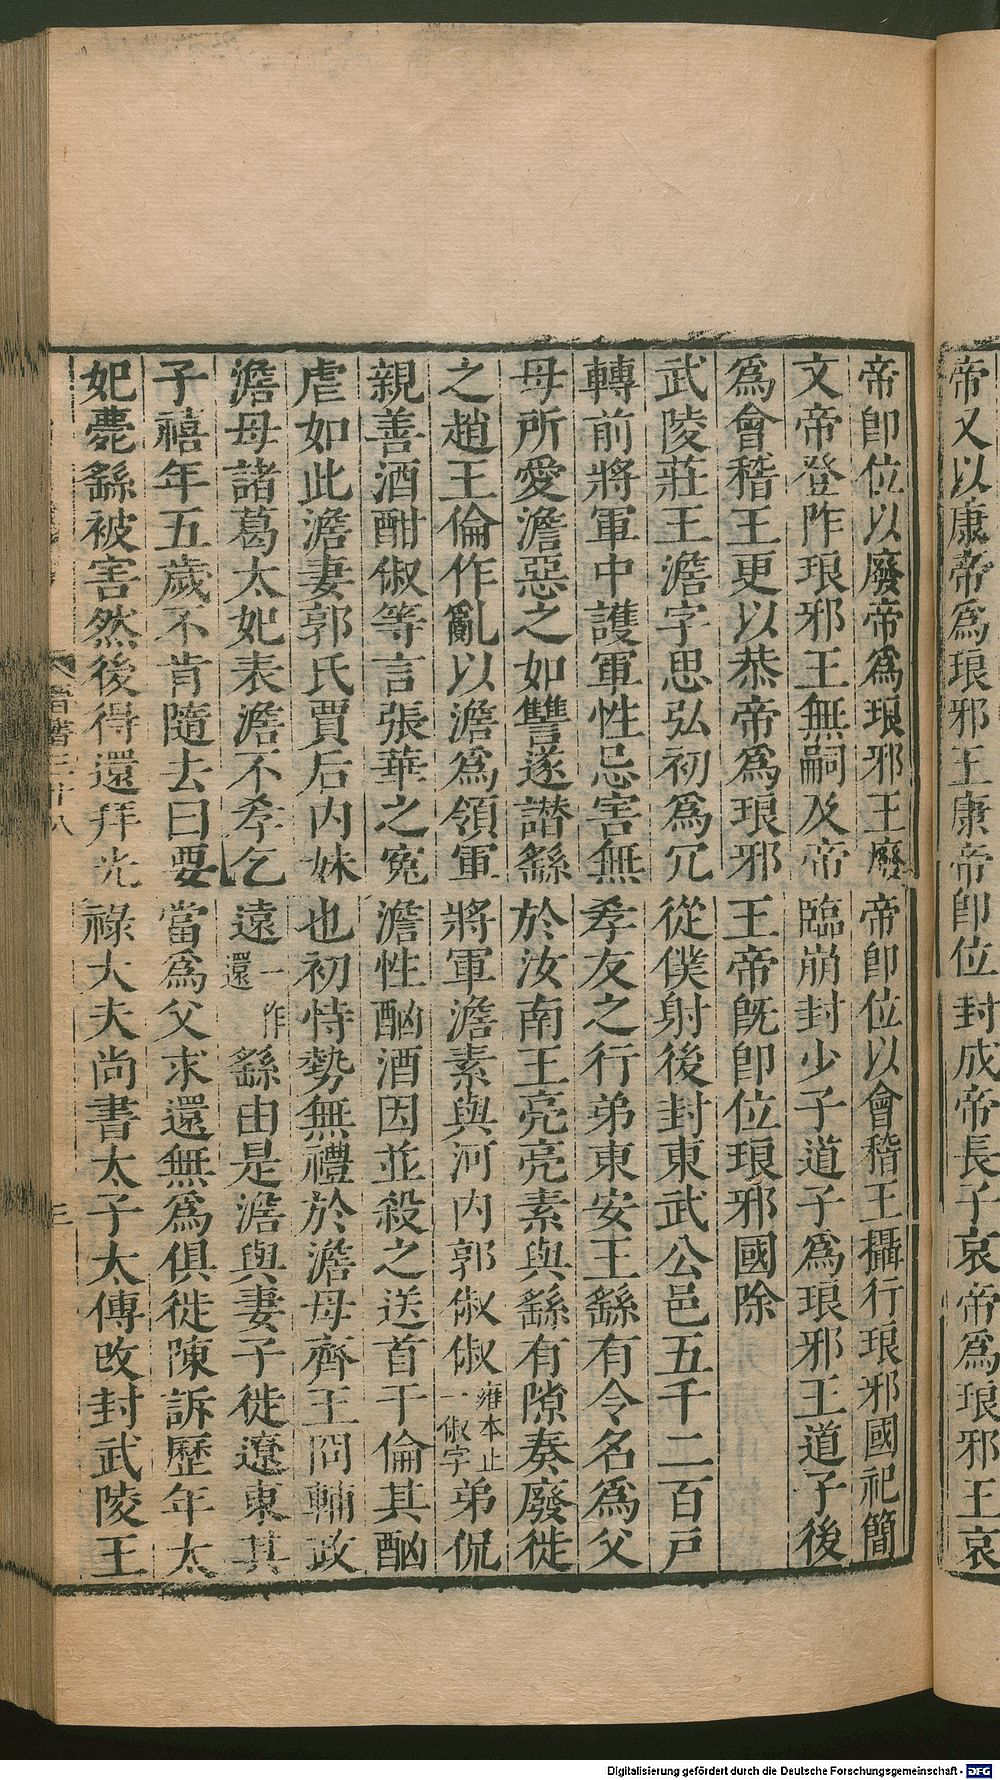 帝又以康帝爲琅邪王康帝卽位封成帝長子哀帝爲琅邪王哀
帝卽位以廢帝爲琅邪王廢帝卽位以會稽王攝行琅邪國祀簡
文帝登阼琅邪王無嗣及帝臨崩封少子道子爲琅邪王道子後
爲會稽王更以恭帝爲琅邪王帝旣卽位琅邪國除
武陵莊王澹字思弘初爲冗從僕射後封東武公邑五千二百戶
轉前將軍中護軍性忌害無孝友之行弟東安王繇有令名爲父
母所愛澹惡之如讐遂譖繇於汝南王亮亮素與繇有隙奏廢徙
之趙王倫作亂以澹爲領軍將軍澹素與河內郭俶俶雍本止一俶字弟侃
親善酒酣俶等言張華之寃澹性酗酒因並殺之送首于倫其酗
虐如此澹妻郭氏賈后內妹也初恃勢無禮於澹母齊王冏輔政
澹母諸葛太妃表澹不孝乞遠一作還繇由是澹與妻子徙遼東其
子禧年五歲不肯隨去曰要當爲父求還無爲俱徙陳訴歷年太
妃薨繇被害然後得還拜光祿大夫尚書太子太傅改封武陵王
晉書三十八
三
Digitalisierung gefördert durch die Deutsche Forschungsgemeinschaft - DFG